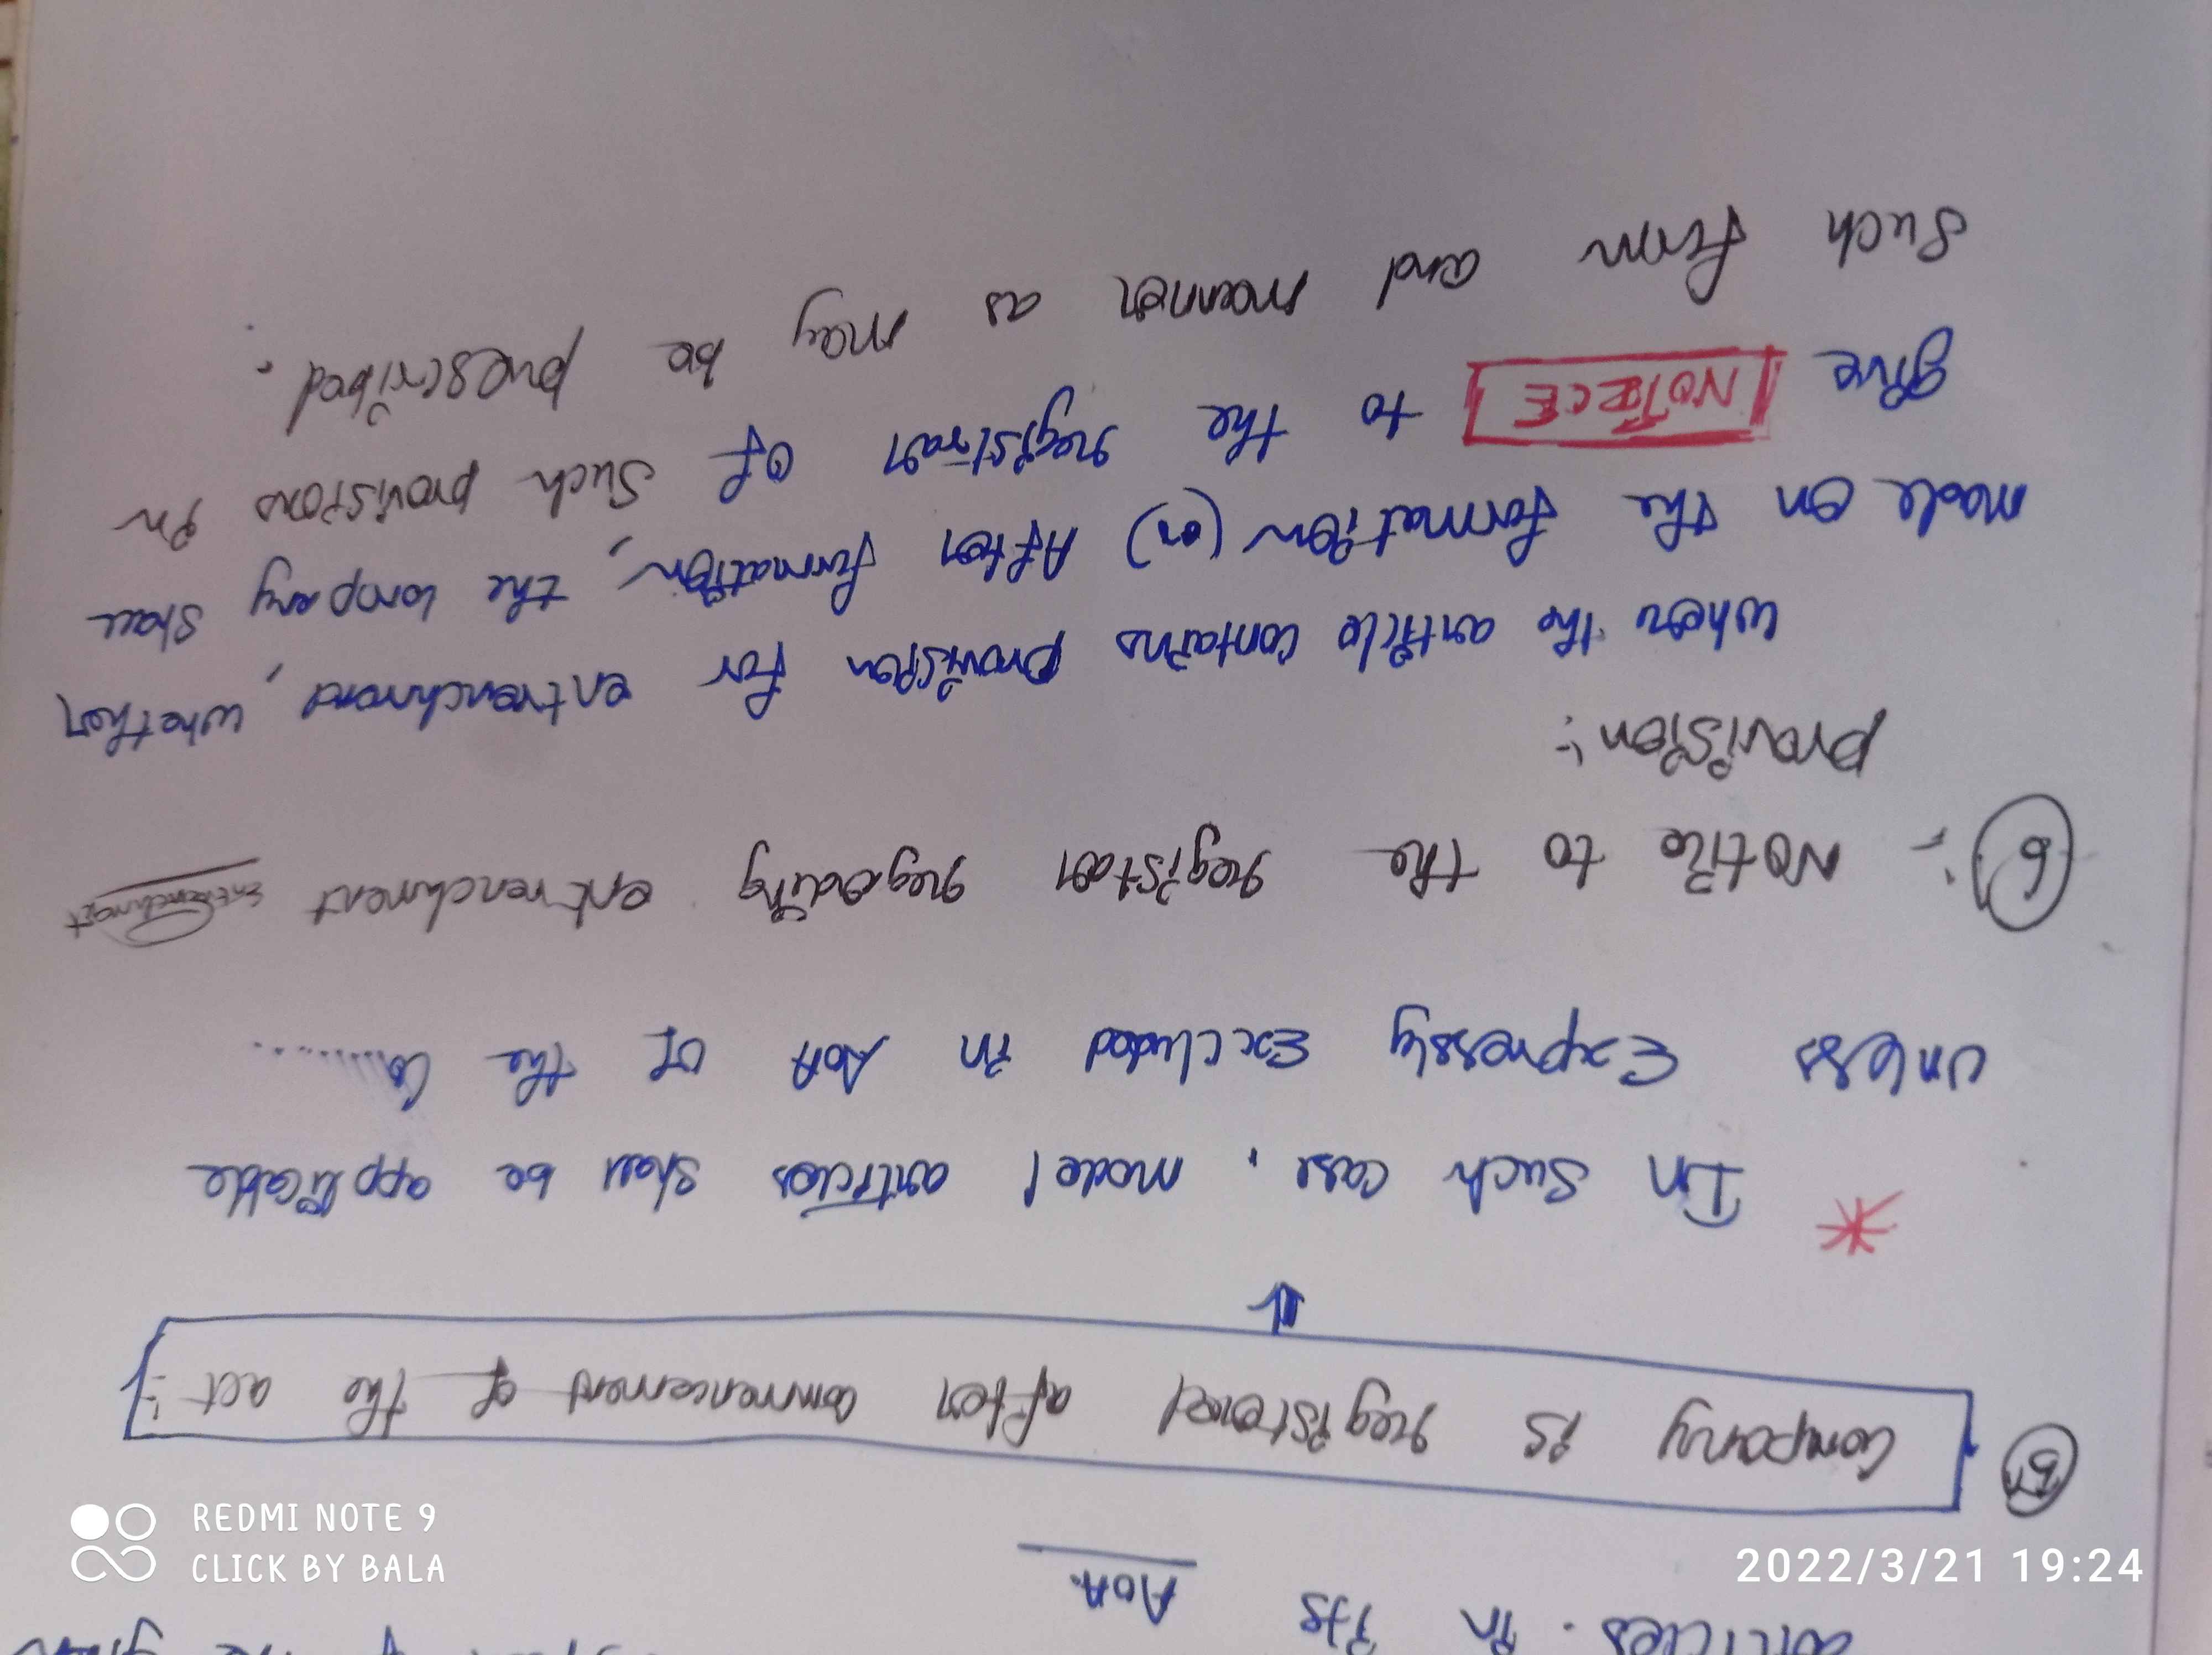 articles. in its AOA.
5 Company is registered after commencement of the act :-
* In such case, model articles shall be applicable
unless Expressly Excluded in AOA of the Co.........
6 :- Notice to the registar regading entrenchment Entrenchment
provision :-
when the article contains provision for entrenchment, whether
made on the formation (or) After formation, the company shall
give NOTICE to the registrar of such provisions in
such form and manner as may be prescribed.
REDMI NOTE 9
CLICK BY BALA
2022/3/21 19:24